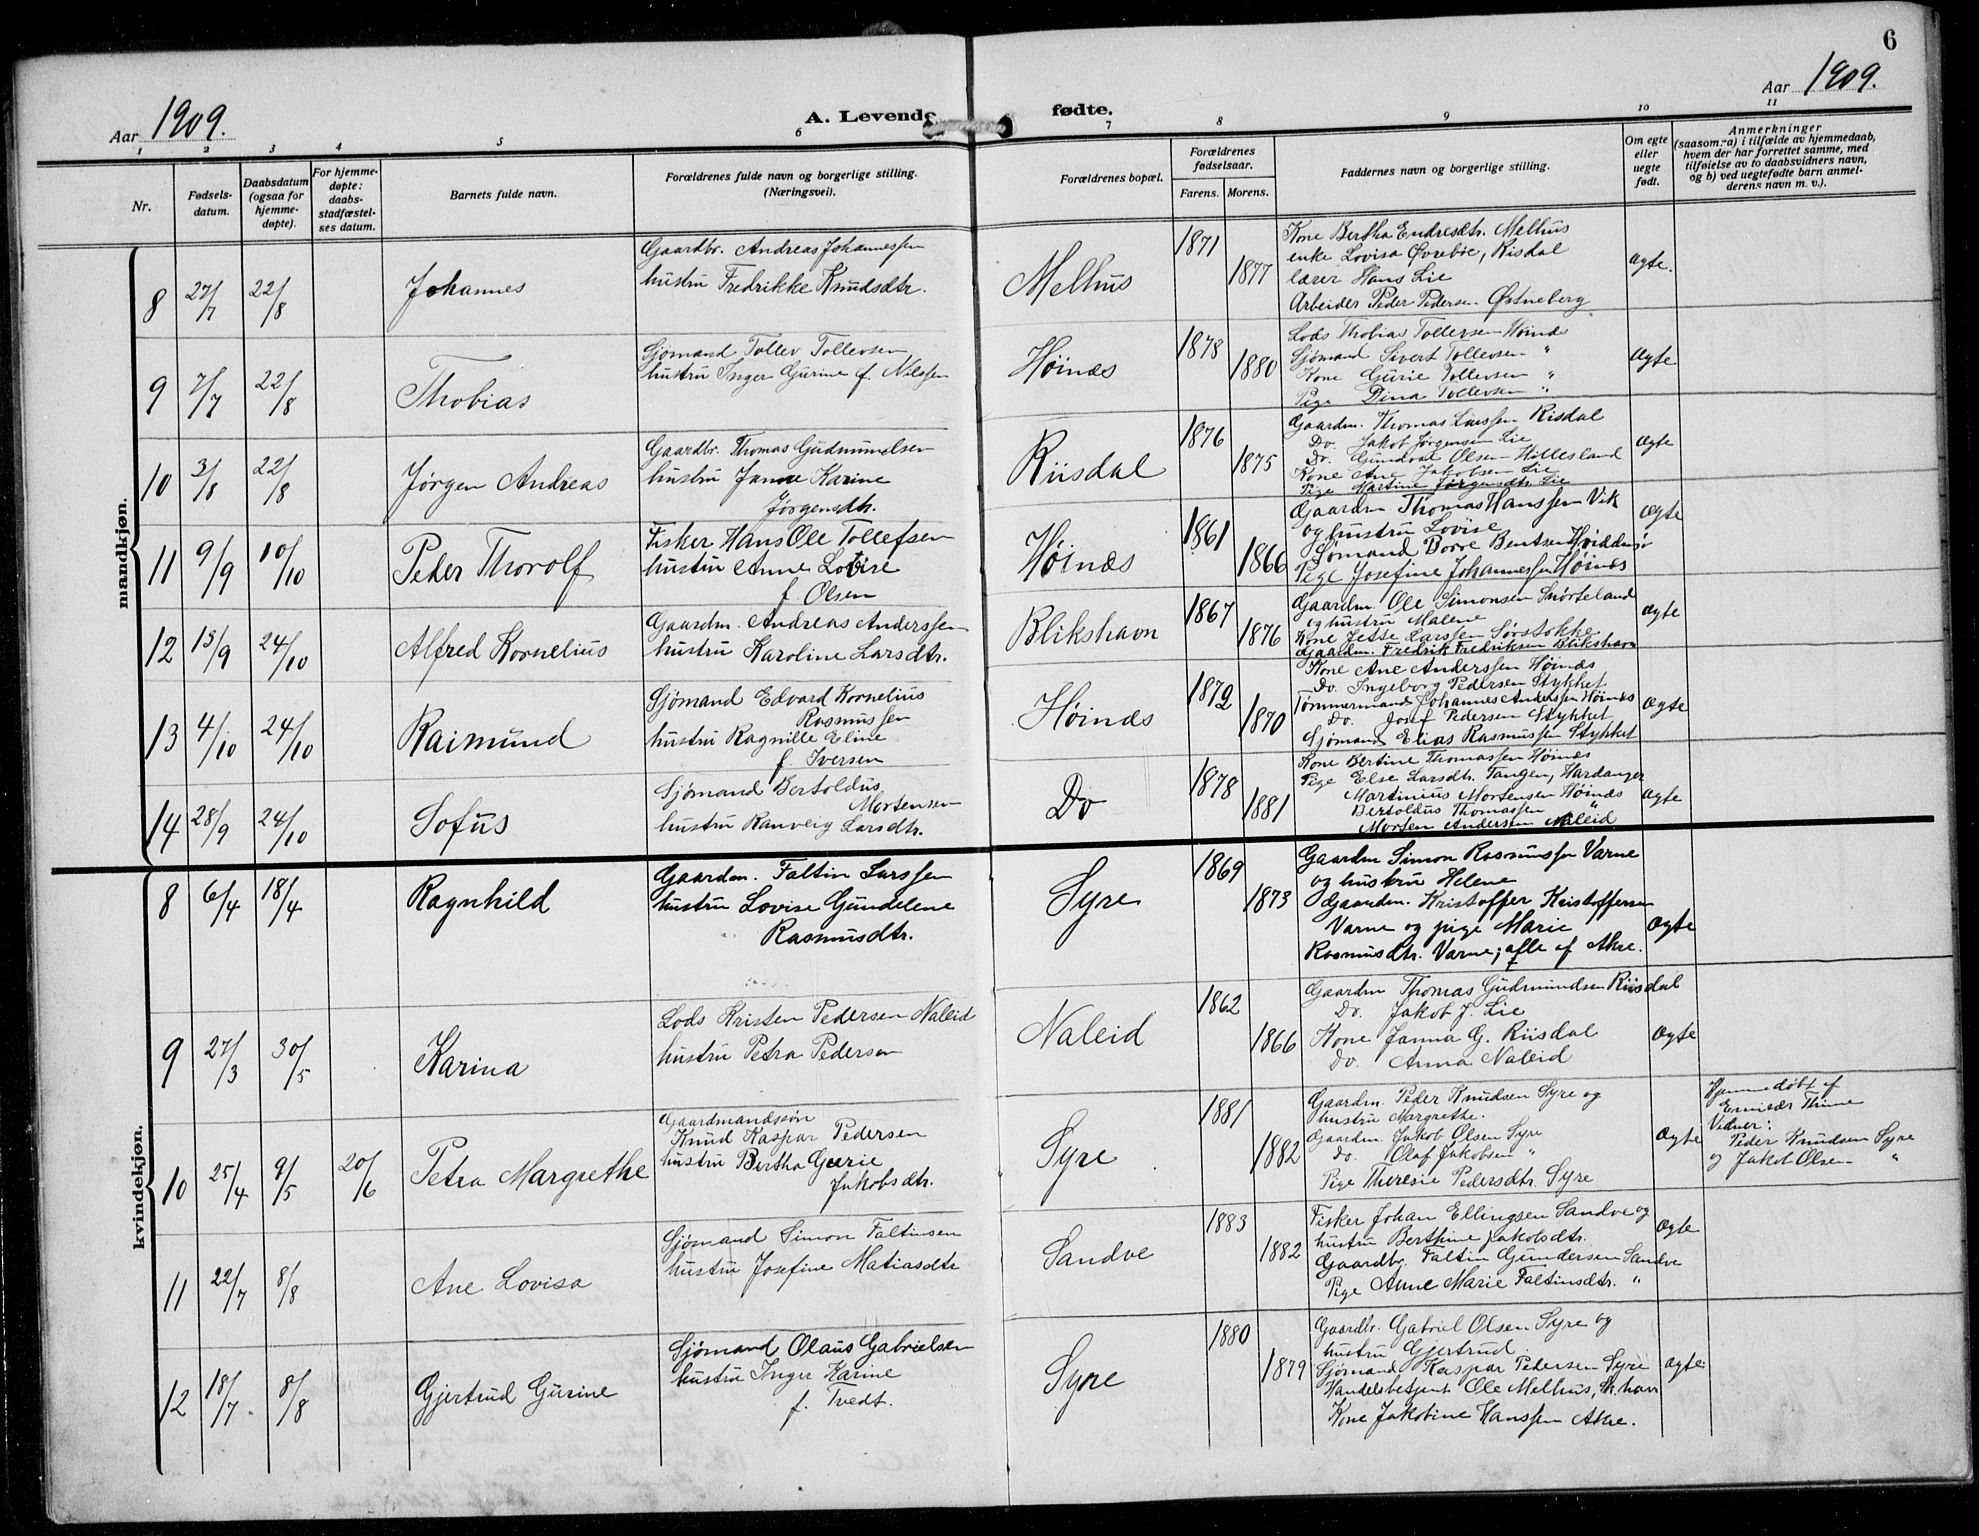 6
Aar 1909.
A. Levende fødte.
Aar 1909.
1 2 3 4 5 6 7 8 9 10 11
Nr.
Fødsels-
datum.
Daabsdatum
(ogsaa for
hjemme-
døpte).
For hjemme-
døpte:
daabs-
stadfæstel-
ses datum.
Barnets fulde navn.
Forældrenes fulde navn og borgerlige stilling.
(Næringsvei).
Forældrenes bopæl.
Forældrenes
fødselsaar.
Farens. Morens.
Faddernes navn og borgerlige stilling.
Om egte
eller
uegte
født.
Anmerkninger
(saasom: a) i tilfælde av hjemmedaab,
hvem der har forrettet samme, med
tilføielse av to daabsvidners navn,
og b) ved uegtefødte barn anmel-
derens navn m. v.).
mandkjøn.
8 27/7 22/8 Johannes
Gaardbr. Andreas Johannessen
hustru Fredrikke Knudsdtr.
Melhus 1871 1877
Kone Bertha Endresdtr. Melhus
enke Lovisa Øvrebøe, Risdal
lærer Hans Lie
Arbeider Peder Pedersen Østneberg
ægte.
9 7/7 22/8 Thobias
Sjømand Tollev Tollevsen
hustru Inger Gurine f. Nilssen
Høinæs 1878 1880
Lods Thobias Tollevsen Høinæs
Sjømand Sivert Tollevsen "
Kone Gurie Tollevsen "
Pige Dina Tollevsen "
ægte
10 3/8 22/8 Jørgen Andreas
Gaardbr. Thomas Gudmundsen
hustru Janne Karine
Jørgensdtr.
Riisdal 1876 1875
Gaardm. Thomas Larssen Risdal
Do. Jakob Jørgensen Lie
Do. Gundval Olsen Hillesland
Kone Ane Jakobsen Lie
Pige Martine Jørgensdtr. Lie
ægte
11 9/9 10/10 Peder Thorolf
Fisker Hans Ole Tollefsen
hustru Anne Lovise
f. Olsen
Høinæs 1861 1866
Gaardm Thomas Hanssen Vik
og hustru Lovise
Sømand Borre Bentsen
Pige Josefine Johannessen Høinæs
ægte
12 15/9 24/10 Alfred Kornelius
Gaardm. Andreas Anderssen
hustru Karoline Larsdtr.
Blikshavn 1867 1876
Gaardm. Ole Simonsen Snørteland
og hustru Malene
Kone Jette Larssen Sørstokke
Gaardm. Fredrik Fredriksen Blikshavn
ægte
13 4/10 24/10 Raimund
Sjømand Edvard Kornelius
Rasmussen
hustru Ragnille Eline
f. Iversen
Høinæs 1872 1870
Kone Ane Anderssen Høinæs
Do. Ingeborg Pedersen Stykket
Tømmermand Johannes Andersen Høinæs
Do. Josef Pedersen Stykket
Sjømand Elias Rasmussen Stykket
ægte
14 28/9 24/10 Sofus
Sjømand Bertoldus
Mortensen
hustru Ranveig Larsdtr.
Do 1878 1881
Kone Bertine Thomassen Høinæs
Pige Else Larsdtr. Tangen, Hardanger
Martinius Mortensen Høinæs
Bertoldus Thomassen "
Morten Andersen Naleid
ægte
kvindekjøn.
8 6/4 18/4 Ragnhild
Gaardm. Faltin Larssen
hustru Lovise Gundelene
Rasmusdtr.
Syre 1869 1873
Gaardm Simon Rasmussen Varne
og hustru Helene
Gaardm. Kristoffer Kristoffersen
Varne og pige Marie
Rasmusdtr. Varne; alle af Akre.
ægte
9 27/3 30/5 Karina
Lods Kristen Pedersen Naleid
hustru Petra Pedersen
Naleid 1862 1866
Gaardm Thomas Gudmundsen Riisdal
Do. Jakob J. Lie
Kone Janna G. Riisdal
Do. Anna Naleid
ægte
10 25/4 9/5 20/6 Petra Margrethe
Gaardmandssøn
Knud Kaspar Pedersen
hustru Bertha Gurie
Jakobsdtr.
Syre 1881 1882
Gaardm. Peder Knudsen Syre og
hustru Margrethe.
Gaardm. Jakob Olsen Syre
do. Olaf Jakobsen "
Pige Theresie Pedersdtr. Syre
ægte
Hjemmedøbt af
Thime
Vidner:
Peder Knudsen Syre
og Jakob Olsen "
11 22/7 8/8 Ane Lovisa
Sjømand Simon Faltinsen
hustru Josefine Matiasdtr
Sandve 1883 1882
Fisker Johan Ellingsen Sandve og
hustru Berthine Jakobsdtr.
Gaardbr. Faltin Gundersen Sandve
Pige Anne Marie Faltinsdtr. "
ægte
12 18/7 8/8 Gjertrud Gurine
Sjømand Olaus Gabrielsen
hustru Inger Karine
f. Tvedt.
Syre 1880 1879
Gaardbr. Gabriel Olsen Syre og
hustru Gjertrud.
Sjømand Kaspar Pedersen Syre
Handelsbetjent Ole Melhus,
Kone Jakobine Hanssen Akre.
ægte